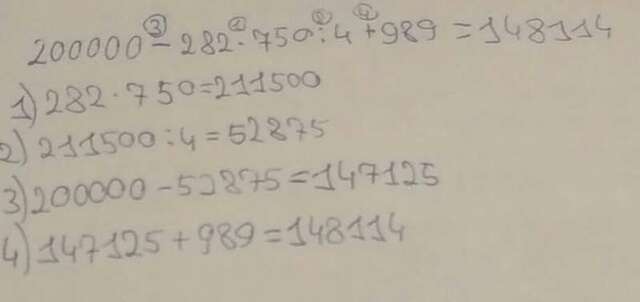 200000 - 282 · 750 : 4 + 989 = 148114
1) 282 · 750 = 211500
2) 211500 : 4 = 52875
3) 200000 - 52875 = 147125
4) 147125 + 989 = 148114